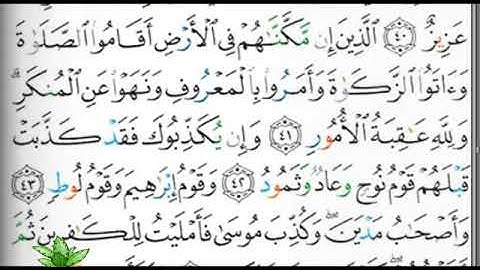 عَزِيزٌ ٤٠ ٱلَّذِينَ إِن مَّكَّنَّٰهُمْ فِى ٱلْأَرْضِ أَقَامُوا۟ ٱلصَّلَوٰةَ
وَءَاتَوُا۟ ٱلزَّكَوٰةَ وَأَمَرُوا۟ بِٱلْمَعْرُوفِ وَنَهَوْا۟ عَنِ ٱلْمُنكَرِ ۗ
وَلِلَّهِ عَٰقِبَةُ ٱلْأُمُورِ ٤١ وَإِن يُكَذِّبُوكَ فَقَدْ كَذَّبَتْ
قَبْلَهُمْ قَوْمُ نُوحٍ وَعَادٌ وَثَمُودُ ٤٢ وَقَوْمُ إِبْرَٰهِيمَ وَقَوْمُ لُوطٍ ٤٣
وَأَصْحَٰبُ مَدْيَنَ ۖ وَكُذِّبَ مُوسَىٰ فَأَمْلَيْتُ لِلْكَٰفِرِينَ ثُمَّ